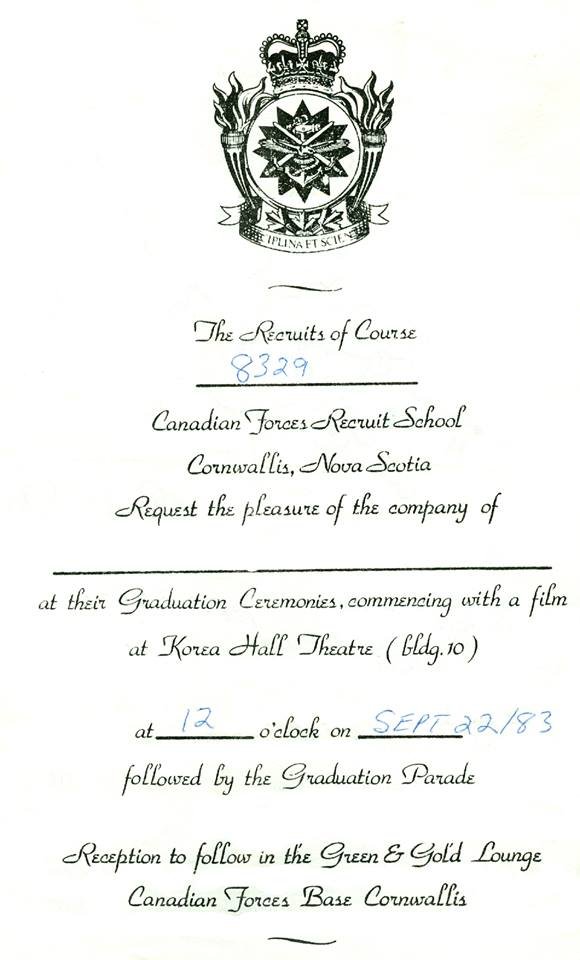 CIPLINA ET SCIEN
The Recruits of Course
8329
Canadian Forces Recruit School
Cornwallis, Nova Scotia
Request the pleasure of the company of
at their Graduation Ceremonies, commencing with a film
at Korea Hall Theatre (bldg. 10)
at 12 o'clock on SEPT 22/83
followed by the Graduation Parade
Reception to follow in the Green & Gold Lounge
Canadian Forces Base Cornwallis